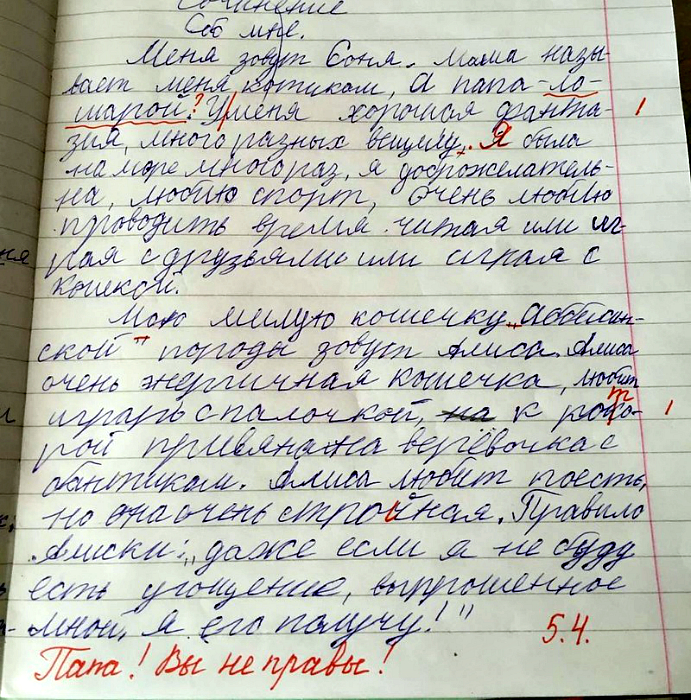 Сочинение
Обо мне.
Меня зовут Соня. Мама назы-
вает меня котиком, а папа - ло-
шарой? У меня хорошая фанта-
зия, много разных вещему. Я была
на море много раз, я доброжелатель-
на, люблю спорт, очень люблю
проводить время читая или иг-
рая с друзьями или играя с
кошкой.
Мою милую кошечку "Аббисин-
ской" породы зовут Алиса. Алиса
очень энергичная кошечка, любит
играть с палочкой, на к кото-
рой привянана верёвочка с
бантиком. Алиса любит поесть,
но она очень стройная. Правило
Алиски: "даже если я не буду
есть угощение, выпрошенное
мной, я его получу!"
5.4.
Папа! Вы не правы!